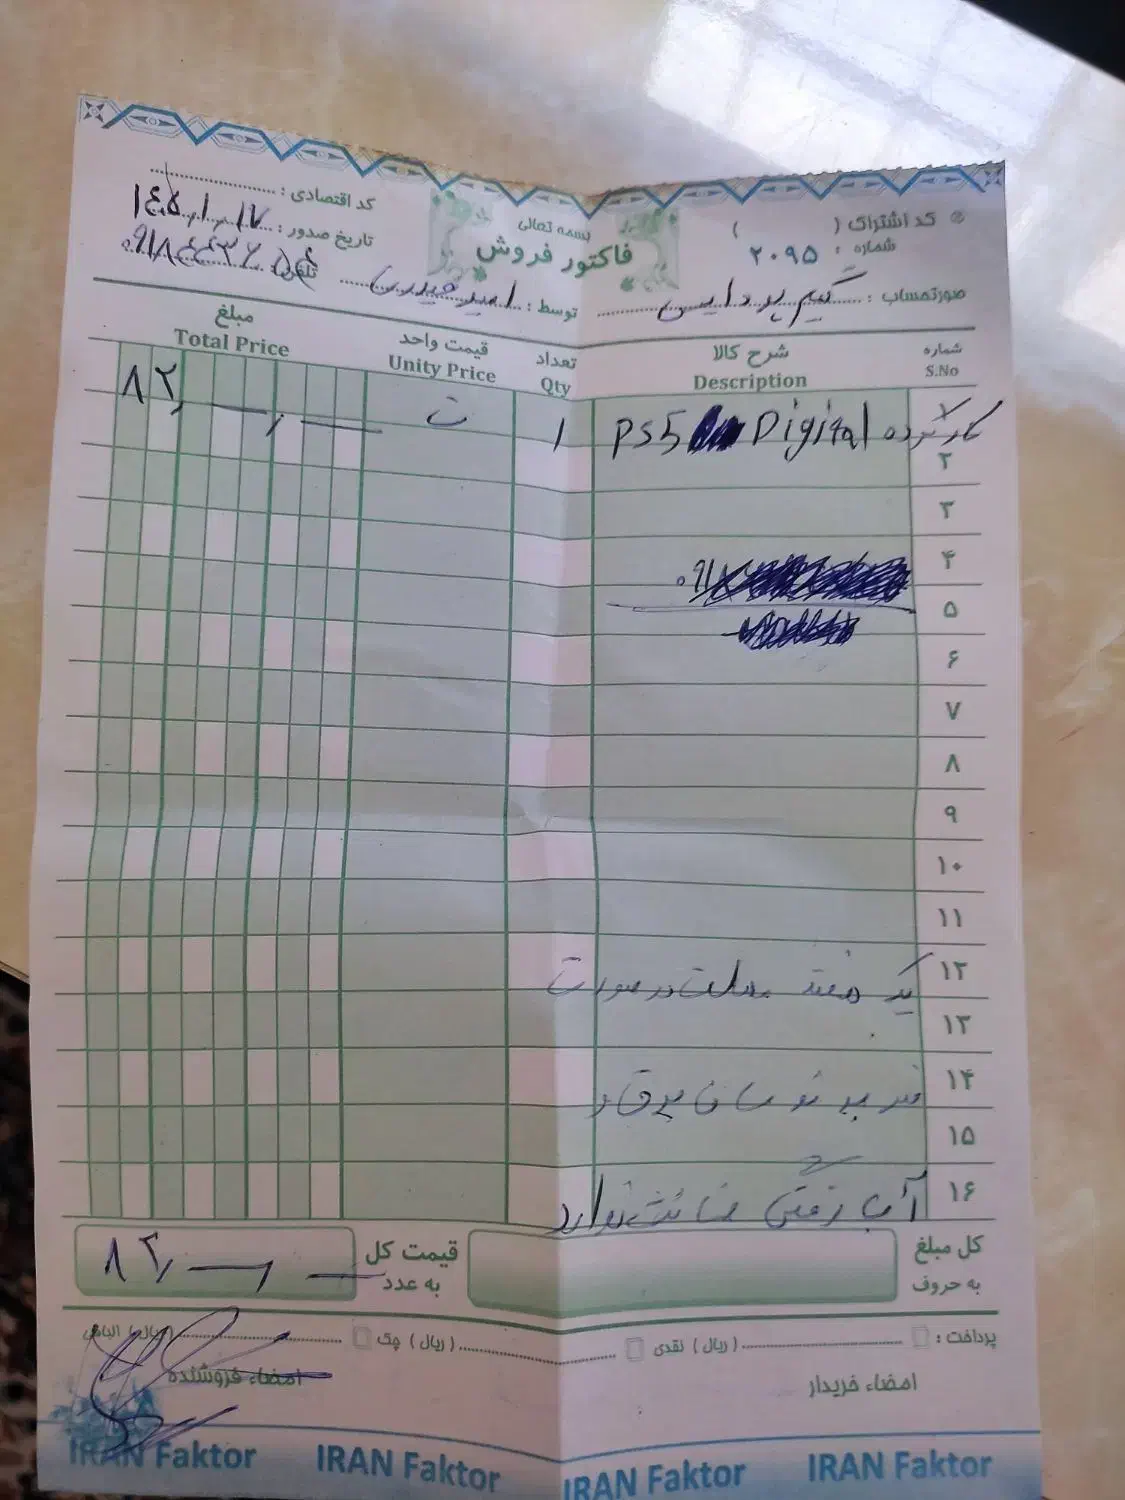 بسمه تعالی
فاکتور فروش
کد اشتراک ( )
شماره : ۲۰۹۵
کد اقتصادی :
تاریخ صدور : ۱۴۰۵/۱/۱۷
تلفن :
صورتحساب : گیم پردایس
توسط : امیر حیدری
شماره S.No
شرح کالا Description
تعداد Qty
قیمت واحد Unity Price
مبلغ Total Price
۱ PS5 Digital کارکرده ۱ ت ۸۲,
۲
۳
۴ ۰۹۱۸
۵
۶
۷
۸
۹
۱۰
۱۱
۱۲ یک هفته مهلت در صورت
۱۳
۱۴ ضربه نوسان برق و
۱۵
۱۶ آب رفتگی ضمانت ندارد
کل مبلغ به حروف
قیمت کل به عدد ۸۲,
پرداخت : (ریال) نقدی (ریال) چک (ریال) الباقی
امضاء خریدار
امضاء فروشنده
IRAN Faktor IRAN Faktor IRAN Faktor IRAN Faktor